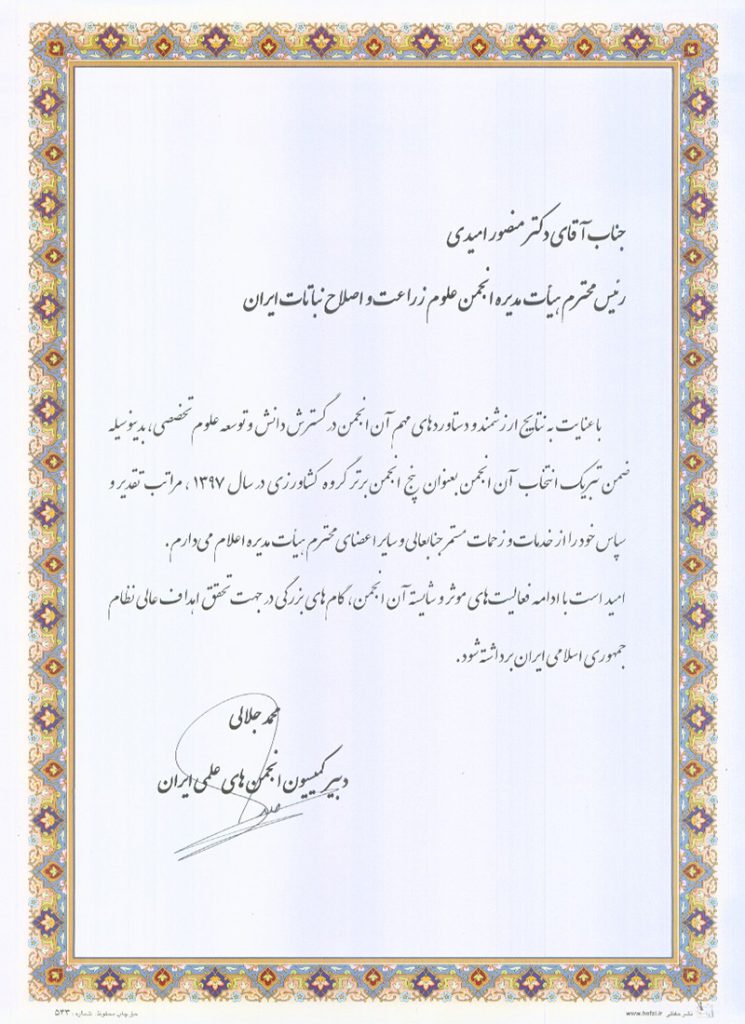 جناب آقای دکتر منصور امیدی
رئیس محترم هیأت مدیره انجمن علوم زراعت و اصلاح نباتات ایران
با عنایت به نتایج ارزشمند و دستاوردهای مهم آن انجمن در گسترش دانش و توسعه علوم تخصصی، بدینوسیله
ضمن تبریک انتخاب آن انجمن بعنوان پنج انجمن برتر گروه کشاورزی در سال ۱۳۹۷، مراتب تقدیر و
سپاس خود را از خدمات و زحمات مستمر جنابعالی و سایر اعضای محترم هیأت مدیره اعلام می‌دارم.
امید است با ادامه فعالیت‌های موثر و شایسته آن انجمن، گام های بزرگی در جهت تحقق اهداف عالی نظام
جمهوری اسلامی ایران برداشته شود.
محمد جلالی
دبیر کمیسیون انجمن های علمی ایران
حق چاپ محفوظ. شماره: ۵۴۳
www.hafzi.ir نشر حافظی